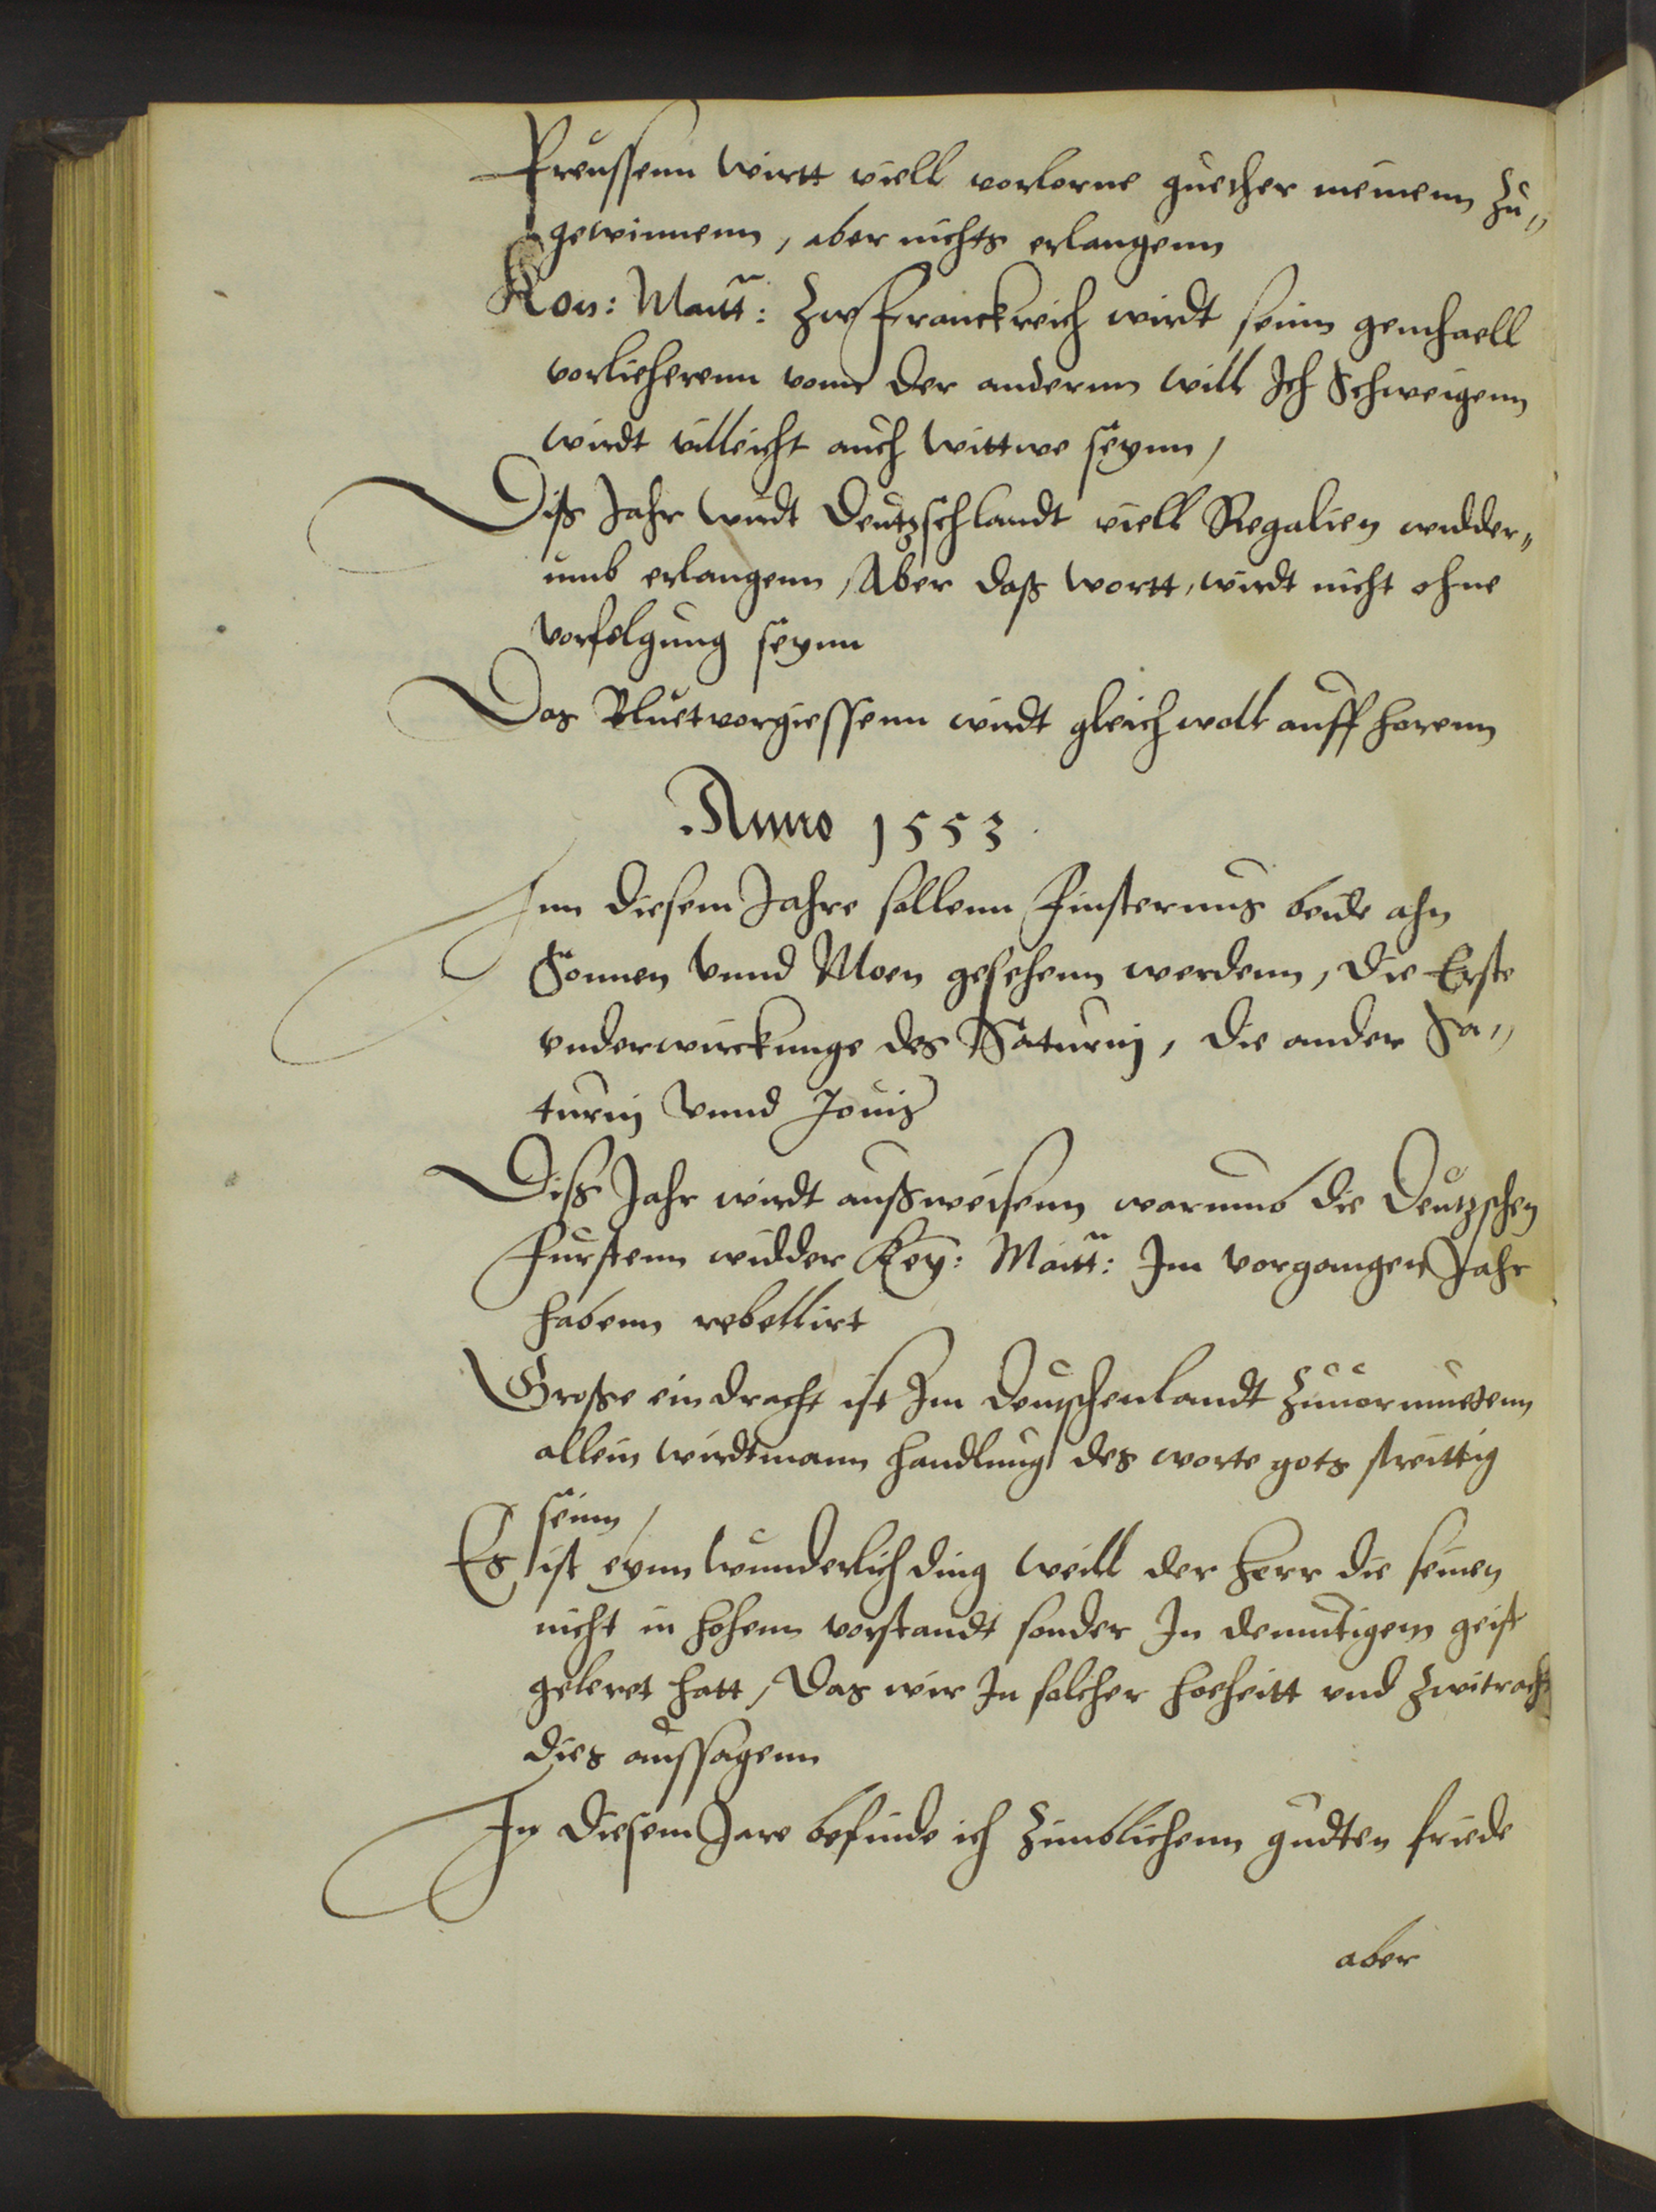 Preussenn wirtt viell verlorne guether meinenn zu„
gewinnenn, aber nichts erlangenn
Kon: Maitt: zw Franckreich wirdt seinn gemhaell
vorlieherenn vonn der andernn will Ich Schweigenn
wirdt villeicht auch wittwe seynn,
Diß Jahr wirdt Deutzschlandt viell Regalien widder„
umb erlangenn, Aber daß wortt, wirdt nicht ohne
vorfolgung seynn
Das Bluetvorgiessenn wirdt gleichwoll auff horenn
Anno 1553.
Inn diesem Jahre sollenn Finsternus beide ahn
Sonnen vnnd Moen gesehenn werdenn, die Erste
vnderwirckunge des Saturnj, die ander Sa„
turnj vnnd Jouis
Diß Jahr wirdt außweisenn warumb die Deutzschen
Furstenn widder Key: Maitt: Im vorgangen Jahr
habenn rebellirt
Große eindracht ist Im Deutschenlandt zuuormuetenn
allein wirdt mann handlung des worts gots streittig
seinn,
Es ist eynn wunderlich ding weill der Herr die seinen
nicht in hohenn vorstandt sonder In demutigem geist
geleret hatt, Das wir In solcher hocheitt vnd zwitracht
dies aussagenn
In diesem Jare befinde ich zimblichenn gudten friede
aber